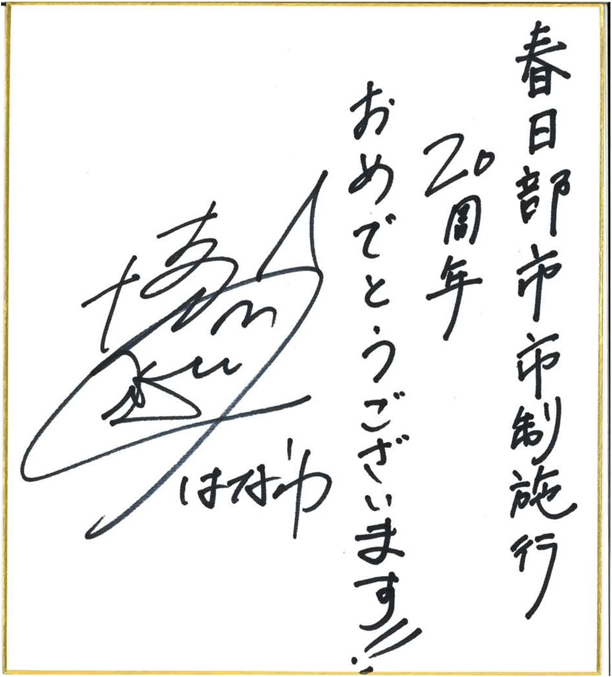 春日部市市制施行
20周年
おめでとうございます!!
はなわ